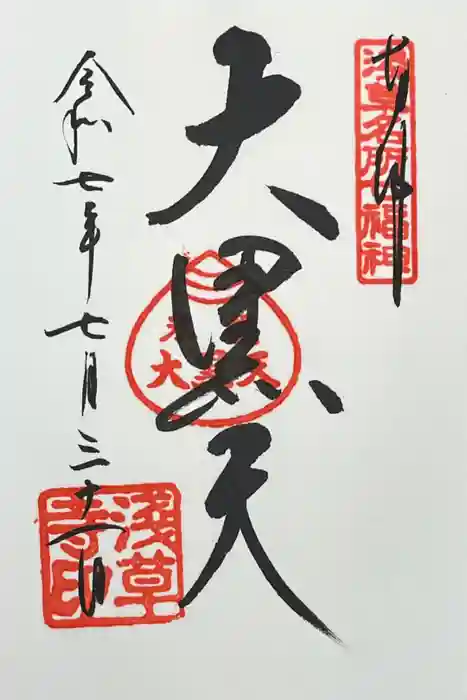 奉拝
浅草名所七福神
大黒天
大黒天
令和七年七月三十一日
浅草寺印